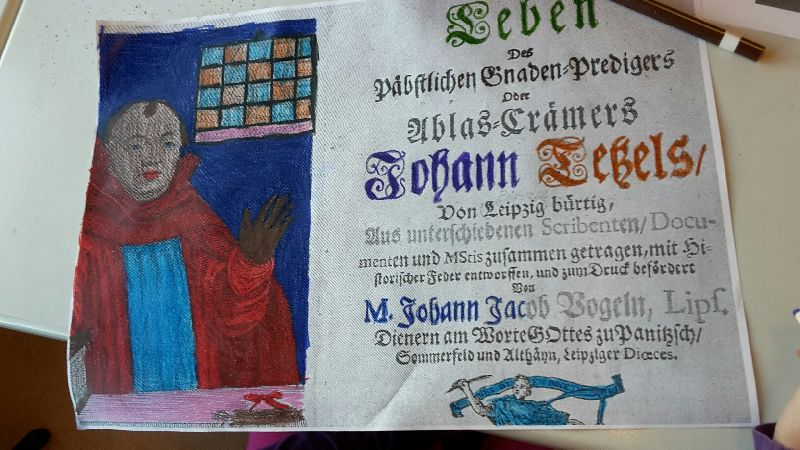 Leben
Des
Päbstlichen Gnaden-Predigers
Oder
Ablas-Crämers
Johann Tetzels/
Von Leipzig bürtig,
Aus unterschiedenen Scribenten/Docu-
menten und MStis zusammen getragen, mit Hi-
storischer Feder entworffen, und zum Druck befördert
Von
M. Johann Jacob Vogeln, Lips.
Dienern am Worte GOttes zu Panitzsch/
Sommerfeld und Althäyn, Leipziger Diœces.